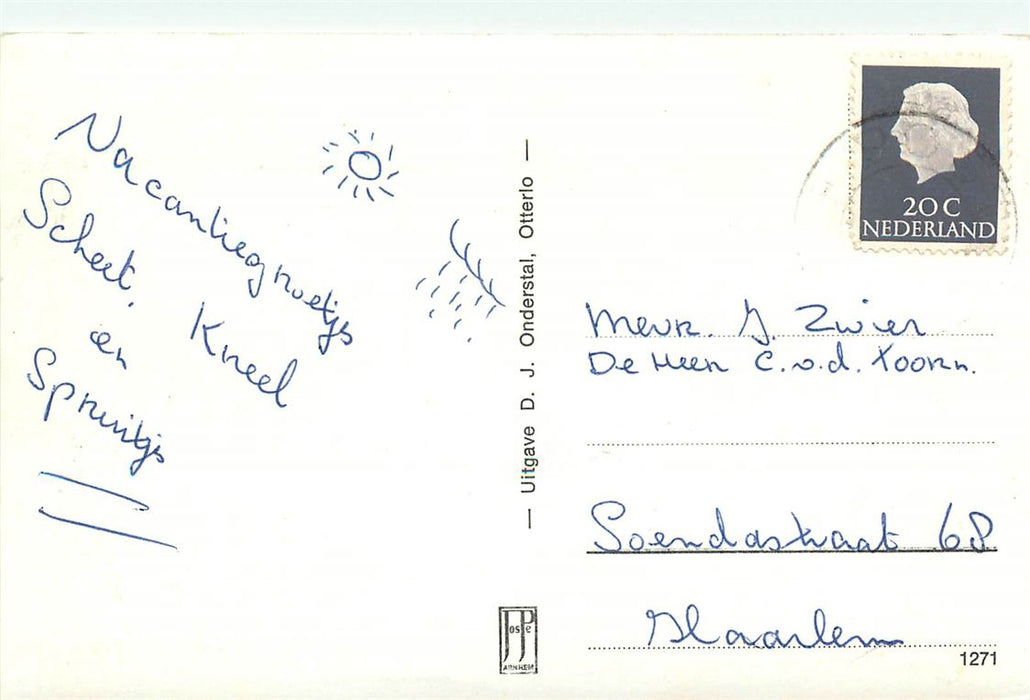 Vacantiegroetjes
Scheet, Kneel
en
Spruitjes
— Uitgave D. J. Onderstal, Otterlo —
20 C
NEDERLAND
Mevr. J. Zwier
De Heer C. v.d. Toorn.
Soendastraat 68
Haarlem
JosPé
ARNHEM
1271